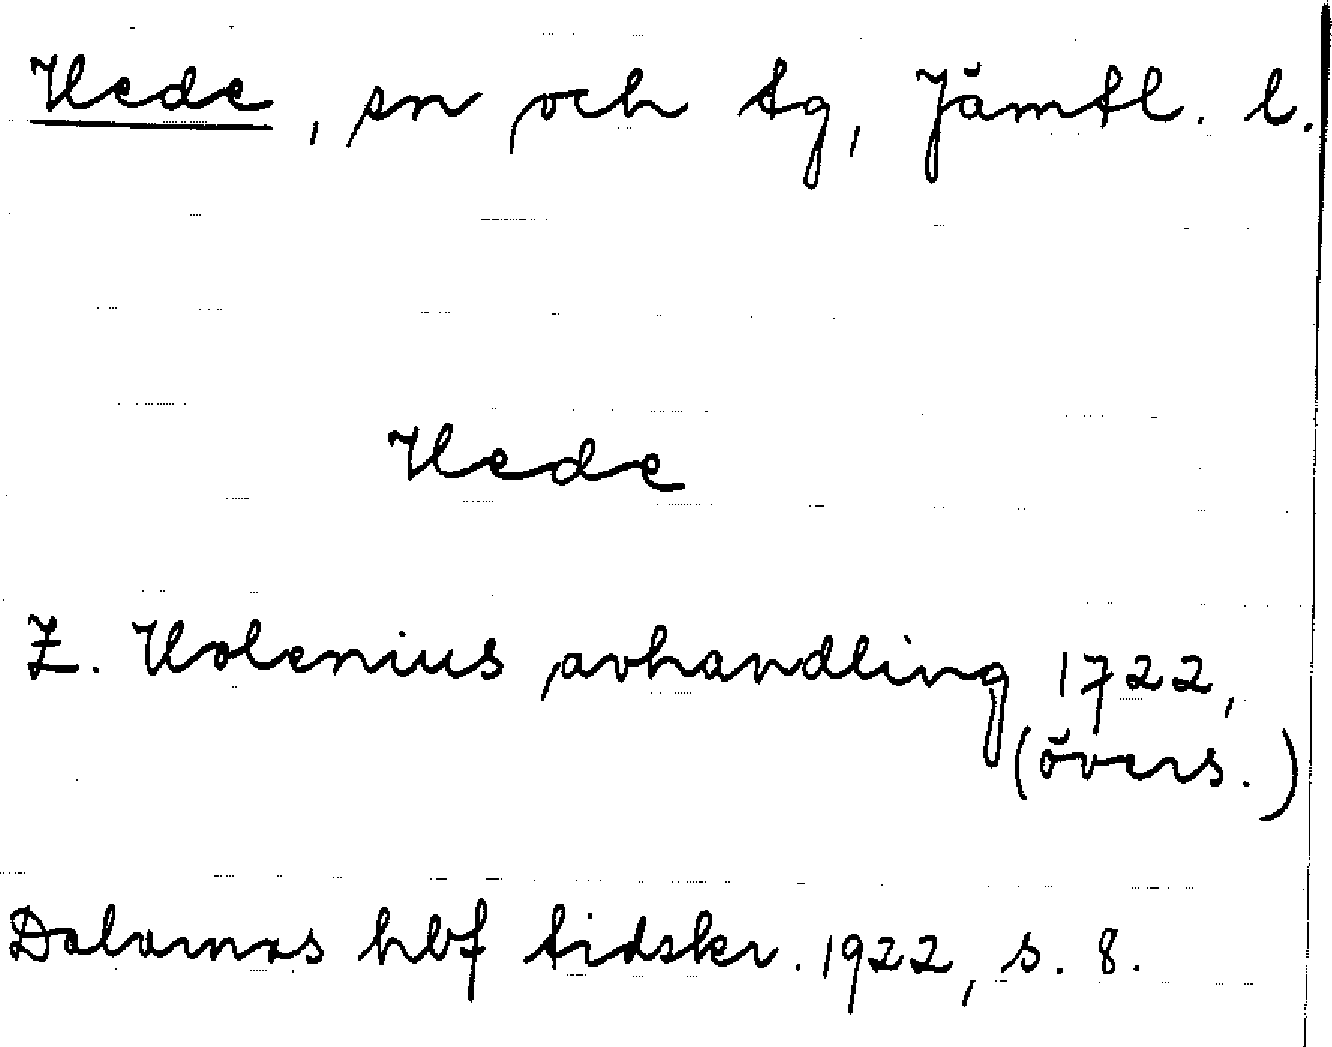 Hede, sn och tg, Jämtl. l.
Hede
Z. Holenius avhandling 1722,
(övers.)
Dalarnas hbf tidskr. 1922, s. 8.